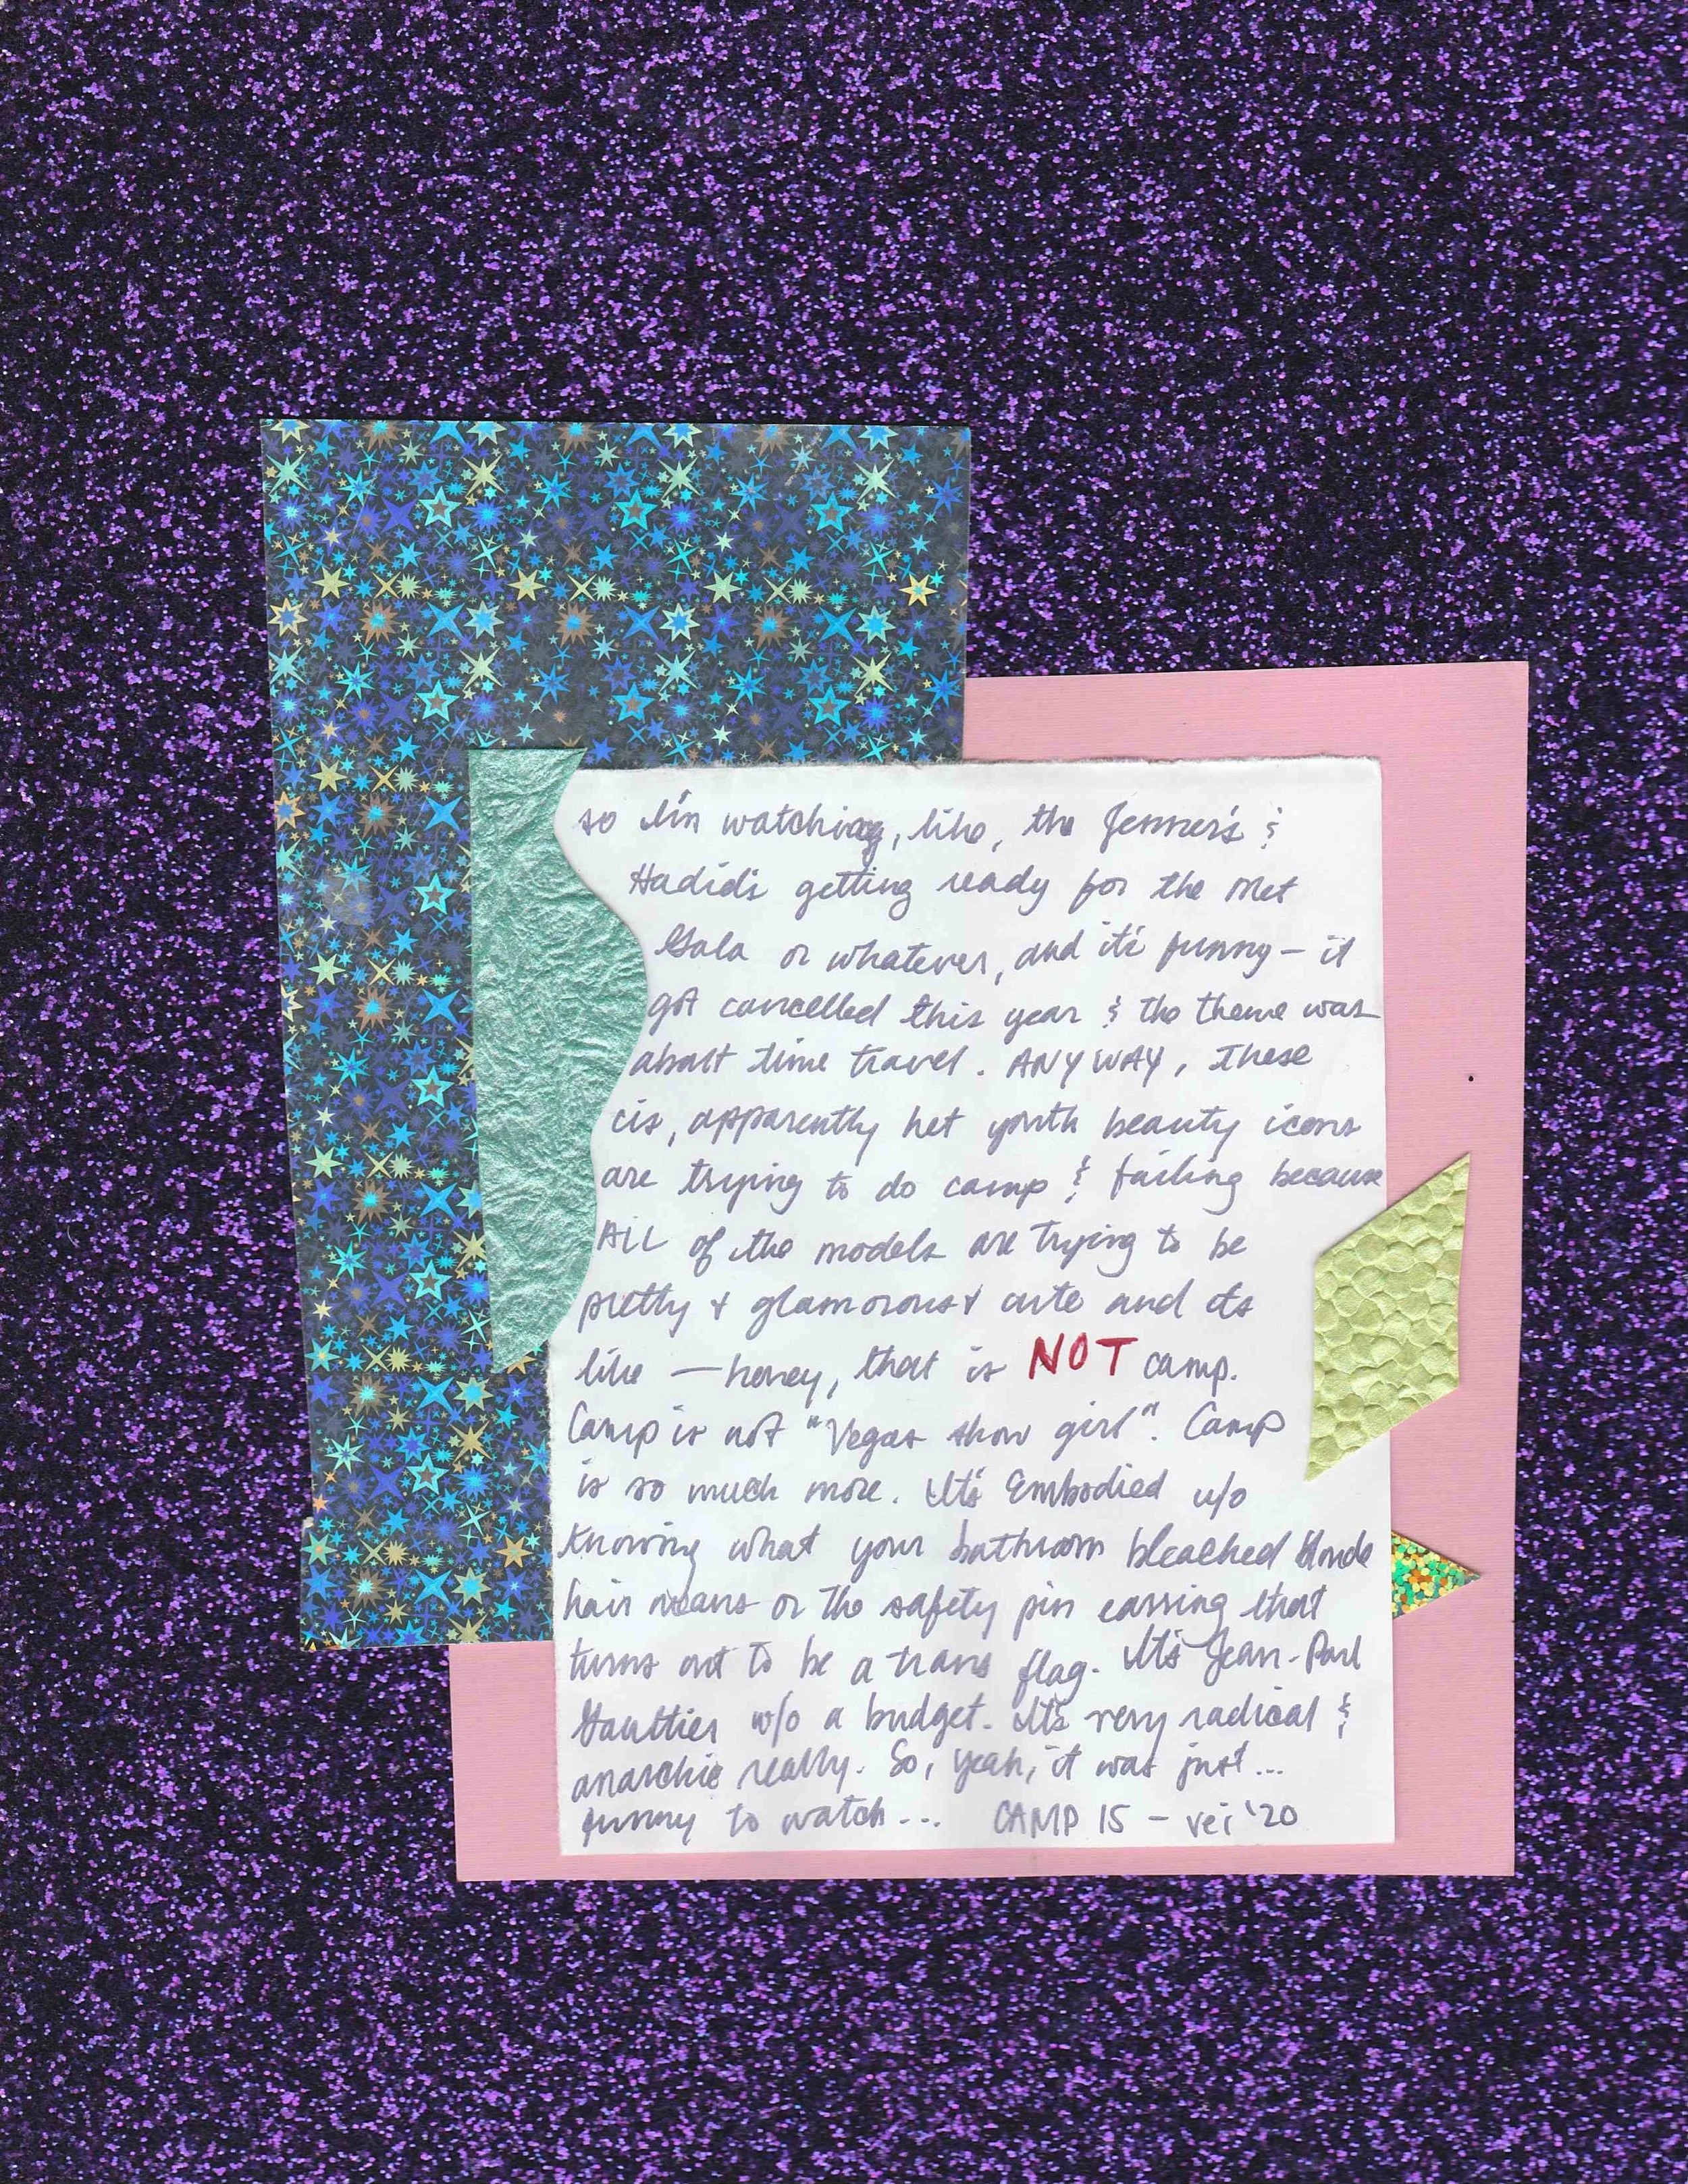 so I'm watching, like, the Jenner's &
Hadids getting ready for the Met
Gala or whatever, and it's funny – it
got cancelled this year & the theme was
about time travel. ANYWAY, these
cis, apparently het youth beauty icons
are trying to do camp & failing because
ALL of the models are trying to be
pretty + glamorous + cute and its
like — honey, that is NOT camp.
Camp is not "Vegas show girl". Camp
is so much more. It's Embodied w/o
knowing what your bathroom bleached blonde
hair means or the safety pin earring that
turns out to be a trans flag. It's Jean-Paul
Gaultier w/o a budget. It's very radical &
anarchic really. So, yeah, it was just...
funny to watch... CAMP IS – vei '20